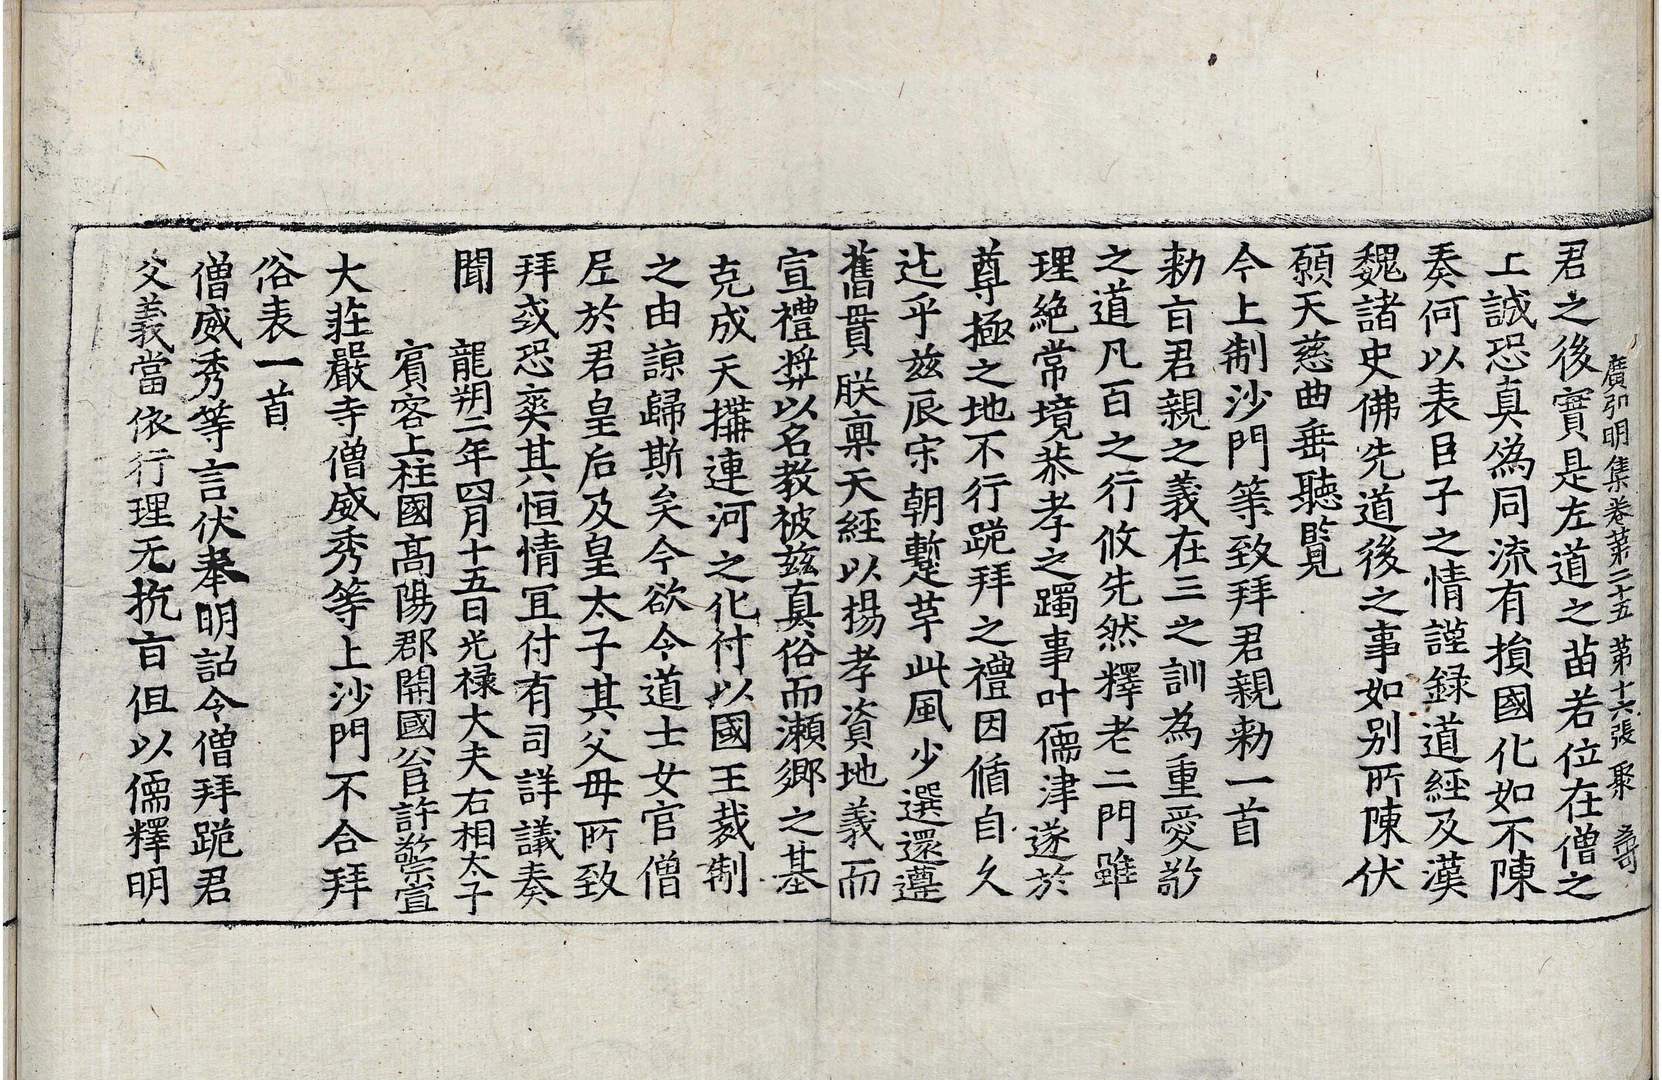 廣弘明集卷第二十五 第十六張 聚
君之後實是左道之苗若位在僧之
上誠恐真為同流有損國化如不陳
奏何以表臣子之情謹録道經及漢
魏諸史佛先道後之事如別所陳伏
願天慈曲垂聽覽
今上制沙門等致拜君親勑一首
勑旨君親之義在三之訓為重愛敬
之道凡百之行攸先然釋老二門雖
理絶常境恭孝之躅事叶儒津遂於
尊極之地不行跪拜之禮因循自久
迄乎兹辰宋朝蹔革此風少選還遵
舊貫朕禀天經以揚孝資地義而
宣禮奬以名教被兹真俗而瀬鄉之基
克成天構連河之化付以國王裁制
之由諒歸斯矣今欲令道士女官僧
尼於君皇后及皇太子其父母所致
拜或恐爽其恒情冝付有司詳議奏
聞 龍朔二年四月十五日光禄大夫右相太子
賔客上柱國高陽郡開國公臣許敬宗宣
大莊嚴寺僧威秀等上沙門不合拜
俗表一首
僧威秀等言伏奉明詔令僧拜跪君
父義當依行理无抗旨但以儒釋明